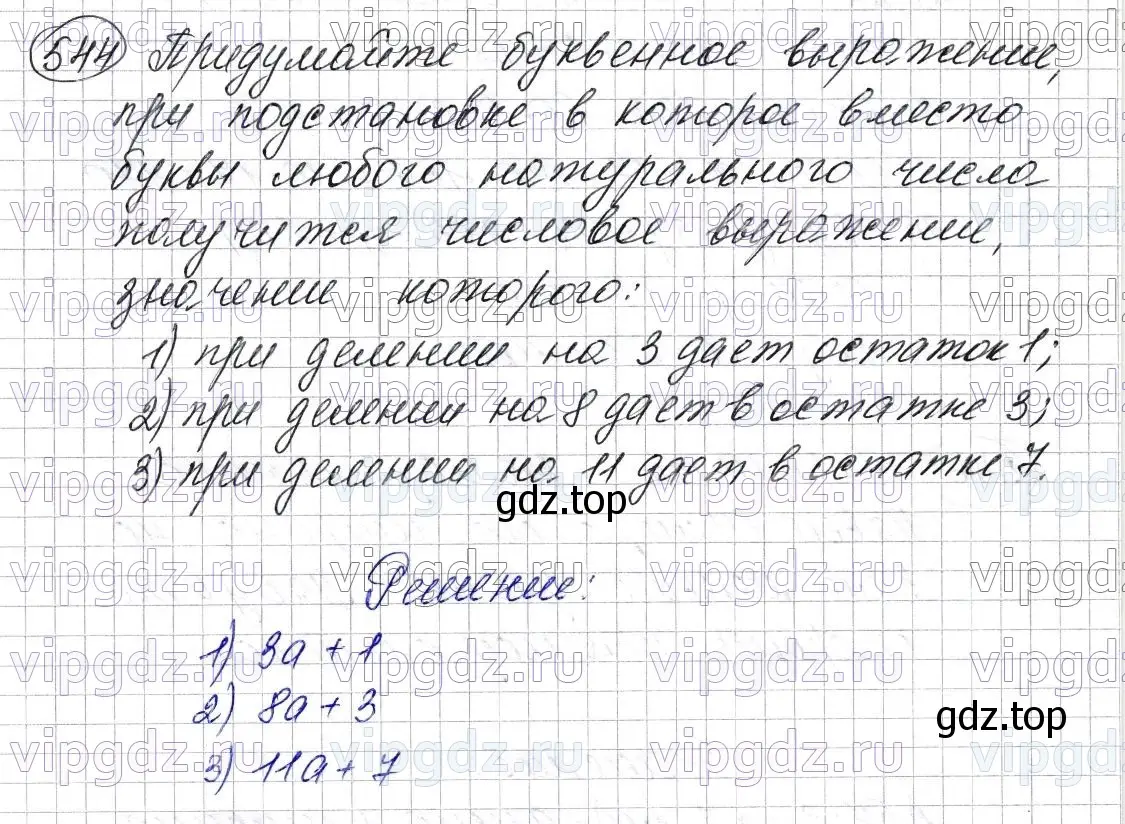 544 Придумайте буквенное выражение,
при подстановке в которое вместо
буквы любого натурального числа
получится числовое выражение,
значение которого:
1) при делении на 3 дает остаток 1;
2) при делении на 8 дает в остатке 3;
3) при делении на 11 дает в остатке 7.
gdz.top
Решение:
1) 3a + 1
2) 8a + 3
gdz.top
3) 11a + 7